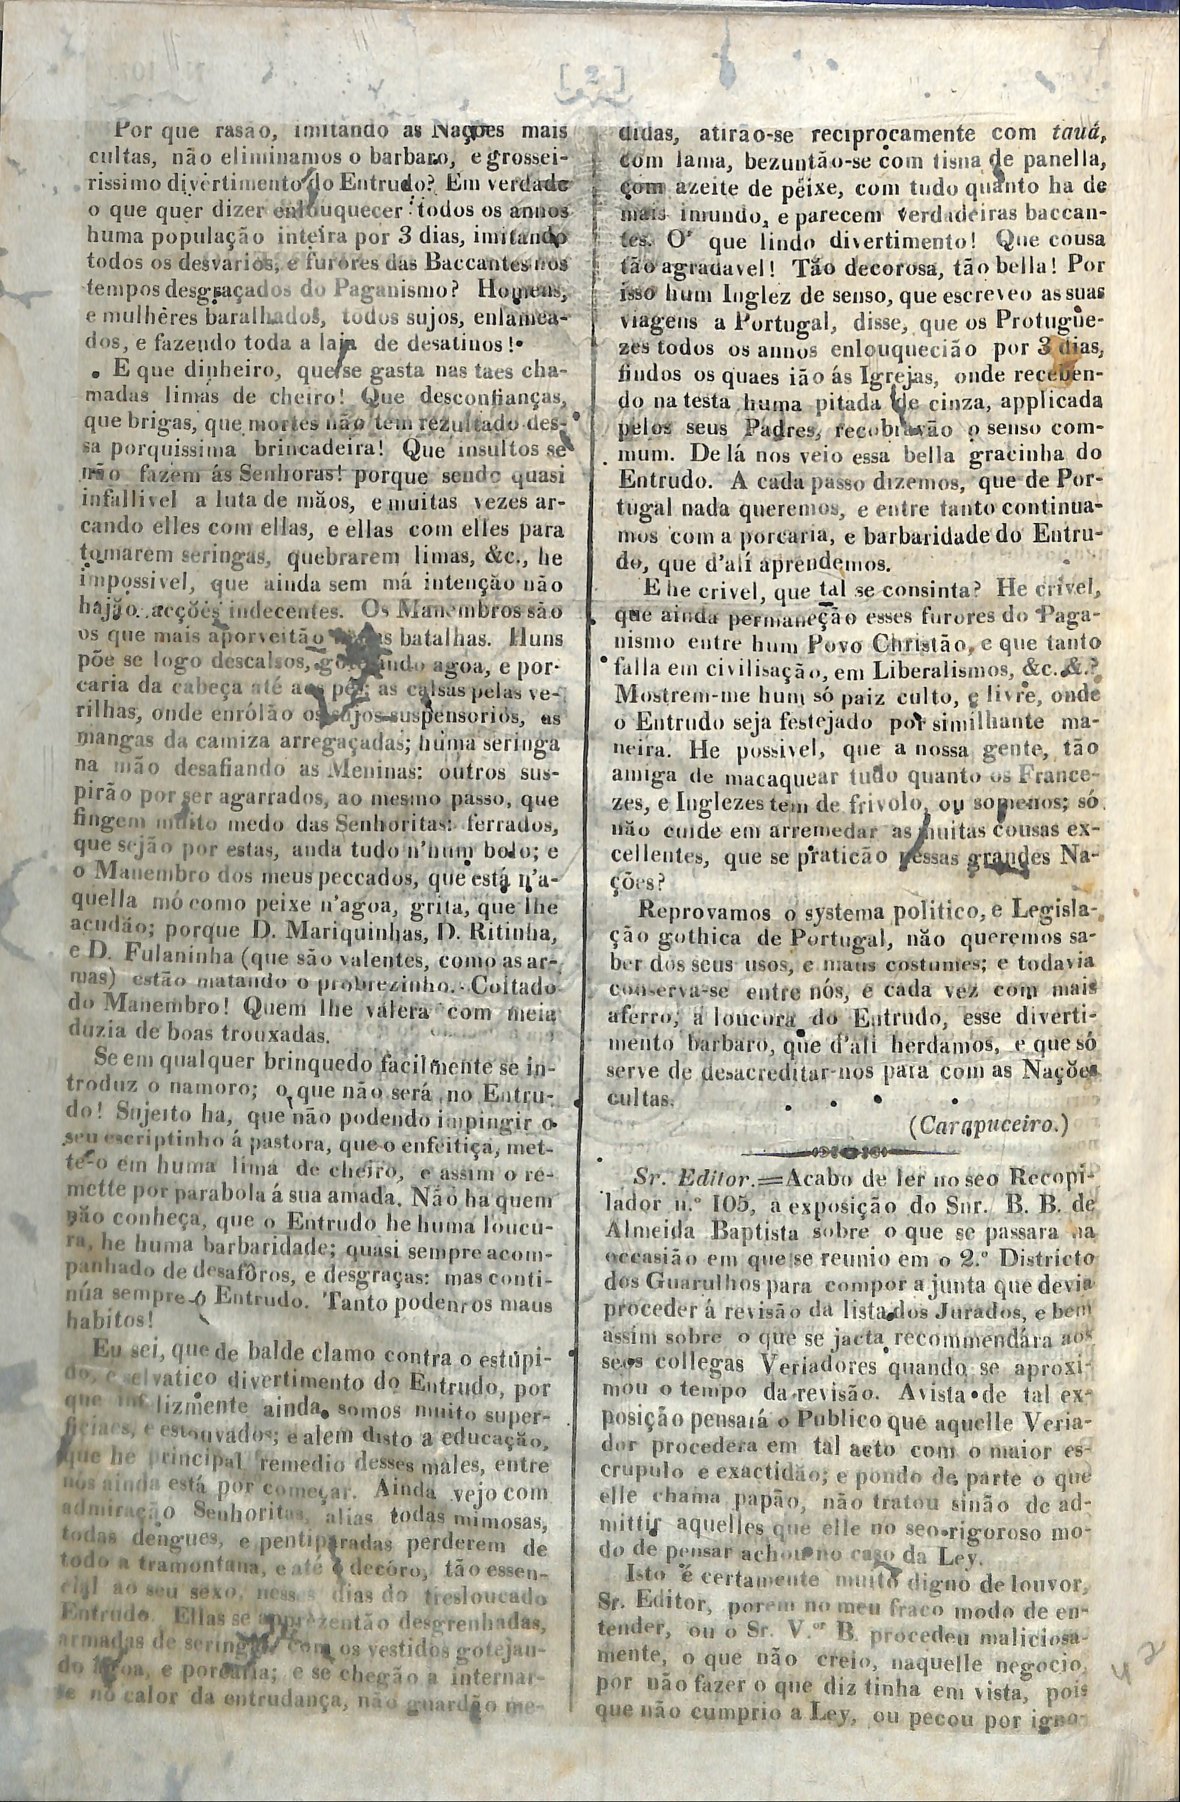 [ 2 ]
Por que rasão, imitando as Nações mais
cultas, não eliminamos o barbaro, e grossei-
rissimo divertimento do Entrudo? Em verdade
o que quer dizer enlouquecer todos os annos
huma população inteira por 3 dias, imitando
todos os desvarios, e furores das Baccantes nos
tempos desgraçados do Paganismo? Homens,
e mulhéres baralhados, todos sujos, enlamea-
dos, e fazendo toda a laia de desatinos!
E que dinheiro, que se gasta nas taes cha-
madas limas de cheiro! Que desconfianças,
que brigas, que mortes não tem rezultado des-
sa porquissima brincadeira! Que insultos se
não fazem ás Senhoras! porque sendo quasi
infallivel a luta de mãos, e muitas vezes ar-
cando elles com ellas, e ellas com elles para
tomarem seringas, quebrarem limas, &c., he
impossivel, que ainda sem má intenção não
hajão acções indecentes. Os Manembros são
os que mais aporveitão batalhas. Huns
põe se logo descalsos, gotejando agoa, e por-
caria da cabeça até aos pés; as calsas pelas ve-
rilhas, onde enrólão os sujos suspensorios, as
mangas da camiza arregaçadas; huma seringa
na mão desafiando as Meninas: outros sus-
pirão por ser agarrados, ao mesmo passo, que
fingem muito medo das Senhoritas: ferrados,
que sejão por estas, anda tudo n'hum bolo; e
o Manembro dos meus peccados, que está n'a-
quella mó como peixe n'agoa, grita, que lhe
acudão; porque D. Mariquinhas, D. Ritinha,
e D. Fulaninha (que são valentes, como as ar-
mas) estão matando o probrezinho. Coitado
do Manembro! Quem lhe valera com meia
duzia de boas trouxadas.
Se em qualquer brinquedo facilmente se in-
troduz o namoro; o que não será no Entru-
do! Sujeito ha, que não podendo impingir o
seu escriptinho á pastora, que o enfeitiça, met-
te-o em huma lima de cheiro, e assim o re-
mette por parabola á sua amada. Não ha quem
não conheça, que o Entrudo he huma loucu-
ra, he huma barbaridade; quasi sempre acom-
panhado de desafôros, e desgraças: mas conti-
núa sempre o Entrudo. Tanto podem os maus
habitos!
Eu sei, que de balde clamo contra o estúpi-
do, e selvatico divertimento do Entrudo, por
que infelizmente ainda somos muito super-
ficiaes, e estouvados; e alem disto a educação,
que he principal remedio desses males, entre
nós ainda está por começar. Ainda vejo com
admiração Senhoritas, alias todas mimosas,
todas dengues, e pentiparadas perderem de
todo a tramontana, e até o decóro, tão essen-
cial ao seu sexo, nesses dias do tresloucado
Entrudo. Ellas se apprezentão desgrenhadas,
armadas de seringas, com os vestidos gotejan-
do agoa, e porcaria; e se chegão a internar-
se no calor da entrudança, não guardão me-
didas, atirão-se reciprocamente com tauá,
com lama, bezuntão-se com tisna de panella,
com azeite de peixe, com tudo quanto ha de
mais imundo, e parecem verdadeiras baccan-
tes. O' que lindo divertimento! Que cousa
tão agradavel! Tão decorosa, tão bella! Por
isso hum Inglez de senso, que escreveo as suas
viagens a Portugal, disse, que os Protugue-
zes todos os annos enlouquecião por 3 dias,
findos os quaes ião ás Igrejas, onde receben-
do na testa huma pitada de cinza, applicada
pelos seus Padres, recobravão o senso com-
mum. De lá nos veio essa bella gracinha do
Entrudo. A cada passo dizemos, que de Por-
tugal nada queremos, e entre tanto continua-
mos com a porcaria, e barbaridade do Entru-
do, que d'alí aprendemos.
E he crivel, que tal se consinta? He crivel,
que ainda permaneção esses furores do Paga-
nismo entre hum Povo Christão, e que tanto
falla em civilisação, em Liberalismos, &c. &.?
Mostrem-me hum só paiz culto, e livre, onde
o Entrudo seja festejado por similhante ma-
neira. He possivel, que a nossa gente, tão
amiga de macaquear tudo quanto os France-
zes, e Inglezes tem de frivolo, ou somenos; só
não cuide em arremedar as muitas cousas ex-
cellentes, que se praticão nessas grandes Na-
ções?
Reprovamos o systema politico, e Legisla-
ção gothica de Portugal, não queremos sa-
ber dos seus usos, e maus costumes; e todavia
conserva-se entre nós, e cada vez com mais
aferro, a loucura do Entrudo, esse diverti-
mento barbaro, que d'ali herdamos, e que só
serve de desacreditar-nos para com as Nações
cultas.
(Carapuceiro.)
Sr. Editor.=Acabo de ler no seo Recopi-
lador n.º 105, a exposição do Snr. B. B. de
Almeida Baptista sobre o que se passara na
occasião em que se reunio em o 2.º Districto
dos Guarulhos para compor a junta que devia
proceder á revisão da lista dos Jurados, e bem
assim sobre o que se jacta recommendára aos
seos collegas Veriadores quando se aproxi-
mou o tempo da revisão. Avista de tal ex-
posição pensará o Publico que aquelle Veria-
dor procedera em tal acto com o maior es-
crupulo e exactidão; e pondo de parte o que
elle chama papão, não tratou sinão de ad-
mittir aquelles que elle no seo rigoroso mo-
do de pensar achou no caso da Ley.
Isto é certamente muito digno de louvor,
Sr. Editor, porem no meu fraco modo de en-
tender, ou o Sr. V.or B. procedeu maliciosa-
mente, o que não creio, naquelle negocio,
por não fazer o que diz tinha em vista, pois
que não cumprio a Ley, ou pecou por igno-
42